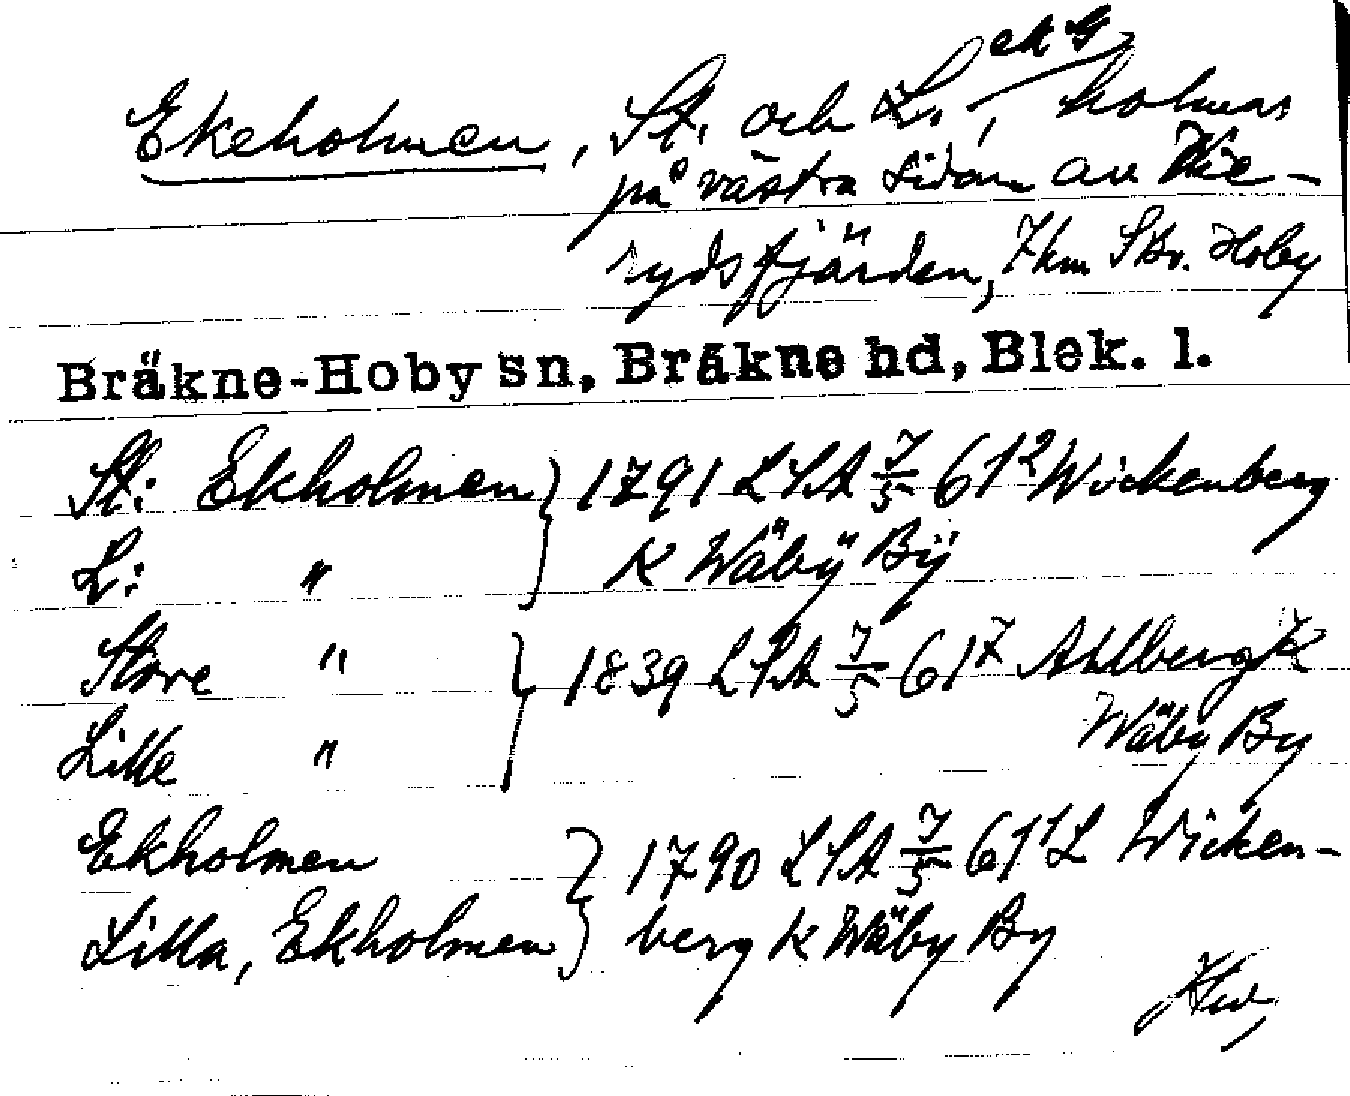 ek G
Ekeholmen, St. och L., holmar
på västra sidan av Vie-
rydsfjärden, 7 km SSv. Hoby
Bräkne-Hoby sn, Bräkne hd, Blek. l.
St: Ekholmen } 1791 LSA 7/5 61² Wickenberg
L: " K Wäbÿ Bÿ
Store " } 1839 LSA 7/5 61⁷ Ahlberg K
Lille " Wäby By
Ekholmen } 1790 LSA 7/5 61¹ L Wicken-
Lilla, Ekholmen berg K Wäby By